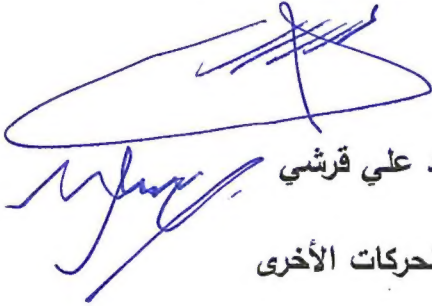 . علي قرشي
لحركات الأخرى